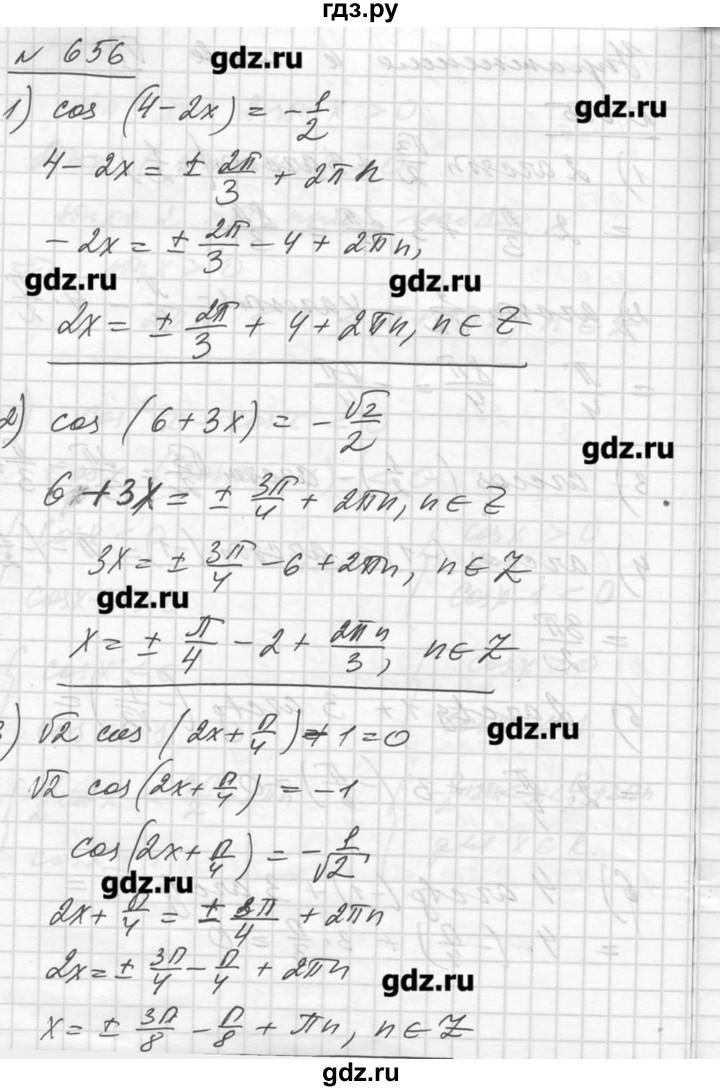 гдз.ру
№ 656
gdz.ru
1) cos (4-2x) = -1/2
gdz.ru
4-2x = ± 2π/3 + 2πn
-2x = ± 2π/3 - 4 + 2πn,
gdz.ru
gdz.ru
2x = ± 2π/3 + 4 + 2πn, n ∈ Z
2) cos (6+3x) = -√2/2
gdz.ru
6+3x = ± 3π/4 + 2πn, n ∈ Z
3x = ± 3π/4 - 6 + 2πn, n ∈ Z
gdz.ru
x = ± π/4 - 2 + 2πn/3, n ∈ Z
gdz.ru
3) √2 cos (2x + π/4) + 1 = 0
√2 cos (2x + π/4) = -1
cos (2x + π/4) = -1/√2
gdz.ru
2x + π/4 = ± 3π/4 + 2πn
2x = ± 3π/4 - π/4 + 2πn
gdz.ru
x = ± 3π/8 - π/8 + πn, n ∈ Z
gdz.ru